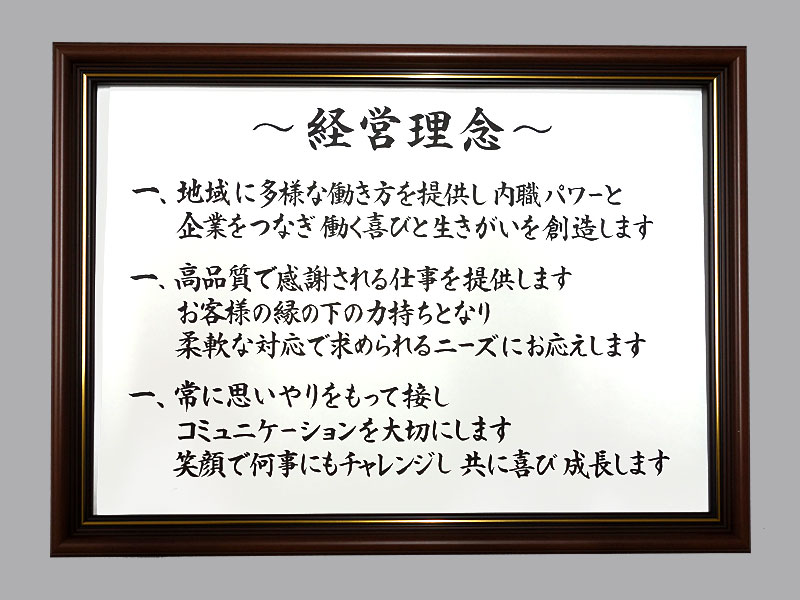 ～経営理念～
一、地域に多様な働き方を提供し 内職パワーと
企業をつなぎ 働く喜びと生きがいを創造します
一、高品質で感謝される仕事を提供します
お客様の縁の下の力持ちとなり
柔軟な対応で求められるニーズにお応えします
一、常に思いやりをもって接し
コミュニケーションを大切にします
笑顔で何事にもチャレンジし 共に喜び 成長します